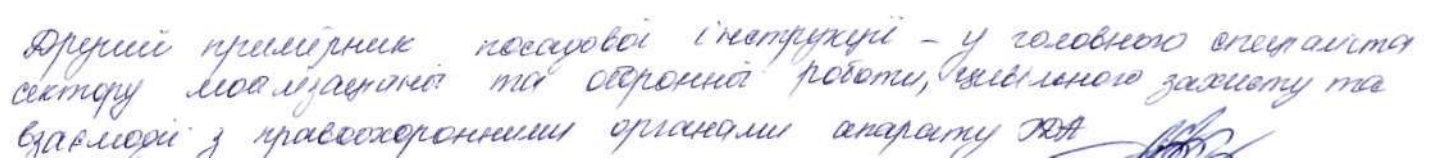 Другий примірник посадової інструкції – у головного спеціаліста
сектору мобілізаційної та оборонної роботи, цивільного захисту та
взаємодії з правоохоронними органами апарату РДА